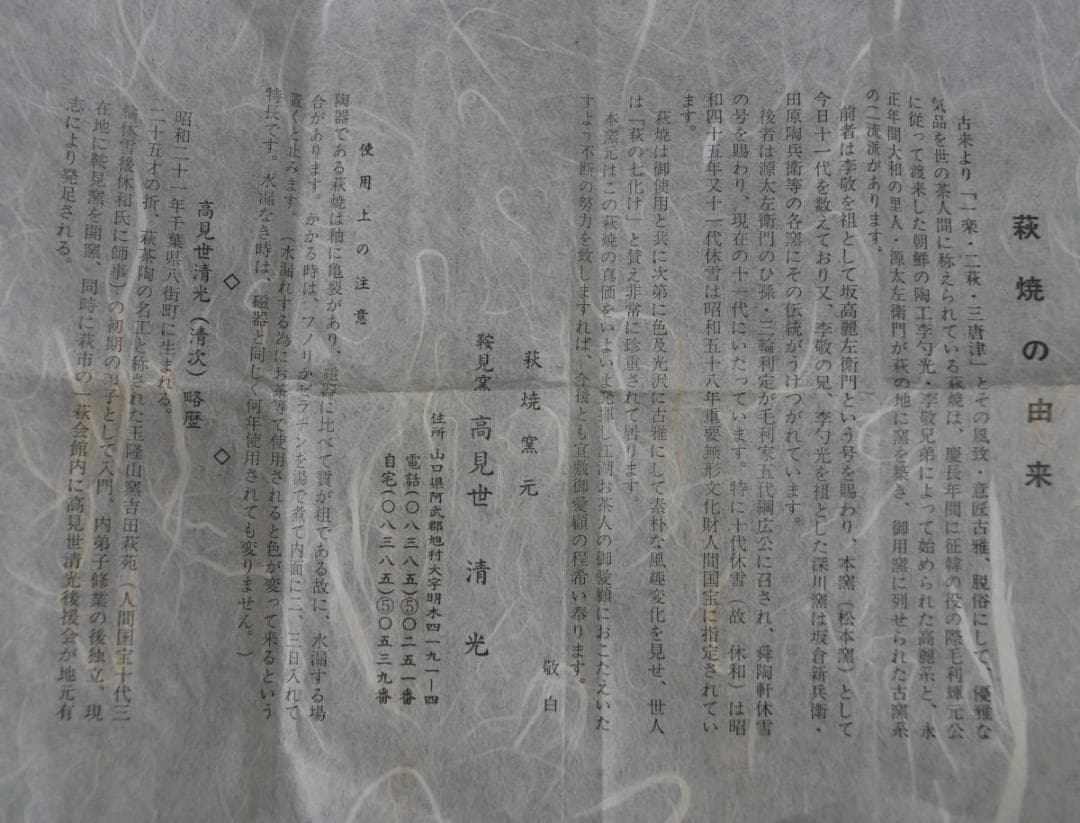 萩焼の由来
古来より「一楽・二萩・三唐津」とその風致・意匠古雅、脱俗にして、優雅な
気品を世の茶人間に称えられている萩焼は、慶長年間に征韓の役の際毛利輝元公
に従って渡来した朝鮮の陶工李勺光・李敬兄弟によって始められた高麗系と、永
正年間大和の里人・源太左衛門が萩の地に窯を築き、御用窯に列せられた古窯系
の二流派があります。
前者は李敬を祖として坂高麗左衛門という号を賜わり、本窯（松本窯）として
今日十一代を数えており又、李敬の兄、李勺光を祖とした深川窯は坂倉新兵衛・
田原陶兵衛等の各窯にその伝統がうけつがれています。
後者は源太左衛門のひ孫・三輪利定が毛利家五代綱広公に召され、舜陶軒休雪
の号を賜わり、現在の十一代にいたっています。特に十代休雪（故　休和）は昭
和四十五年又十一代休雪は昭和五十八年重要無形文化財人間国宝に指定されてい
ます。
萩焼は御使用と共に次第に色及光沢に古雅にして素朴な風趣変化を見せ、世人
は「萩の七化け」と賛え非常に珍重されて居ります。
本窯元はこの萩焼の真価をいよいよ発揮し江湖お茶人の御愛顧におこたえいた
すよう不断の努力を致しますれば、今後とも宜敷御愛顧の程希い奉ります。
敬白
萩焼窯元
鞍見窯 高見世　清光
住所 山口県阿武郡旭村大字明木四一九一―四
電話（〇八三八五）⑤〇二五一番
自宅（〇八三八五）⑤〇五三九番
使用上の注意
陶器である萩焼は釉に亀裂があり、磁器に比べて質が粗である故に、水漏する場
合があります。かかる時は、フノリかゼラチンを湯で煮て内面に二、三日入れて
置くと止みます。（水漏れする為にお茶等で使用されると色が変って来るという
特長です。水漏なき時は、磁器と同じく何年使用されても変りません。）
◇　◇
高見世清光（清次）略歴
昭和二十一年千葉県八街町に生まれる。
二十五才の折、萩茶陶の名工と称された玉隆山窯吉田萩苑（人間国宝十代三
輪休雪後休和氏に師事）の初期の弟子として入門、内弟子修業の後独立、現
在地に鞍見窯を開窯、同時に萩市の一萩会館内に高見世清光後援会が地元有
志により発足される。